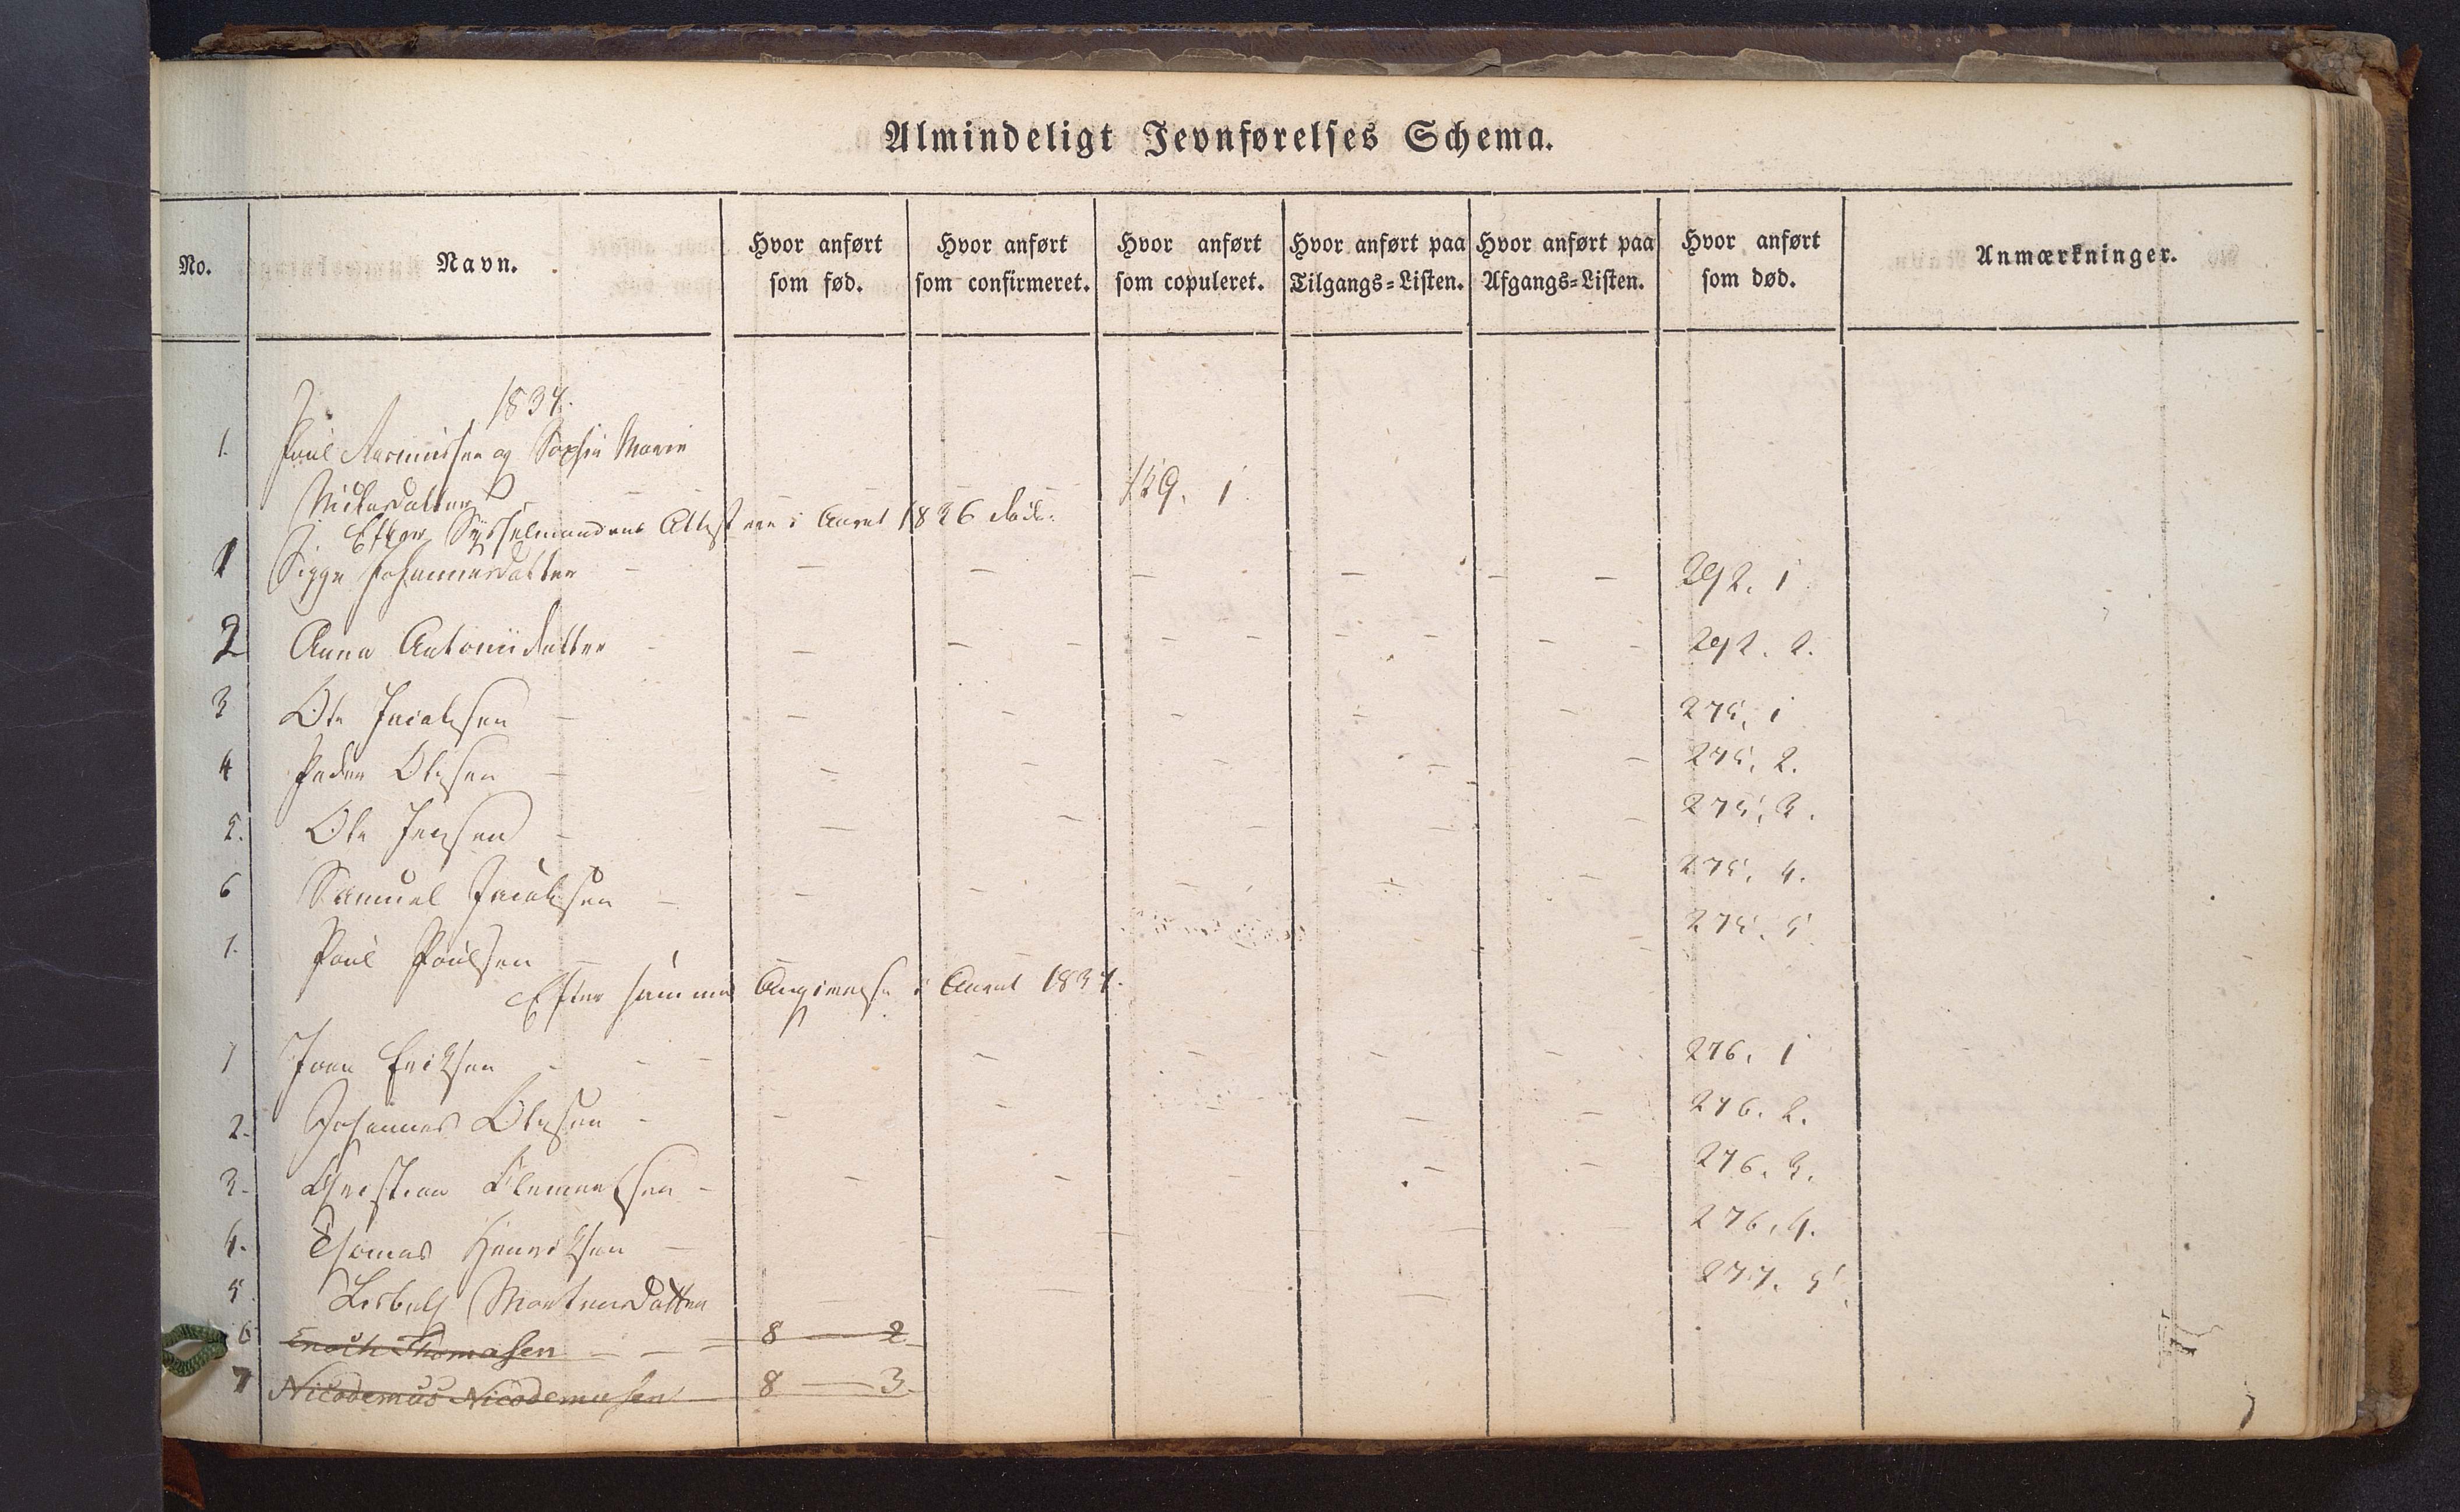 Almindeligt Jevnførelses Schema.
No. Navn. Hvor anført som fød. Hvor anført som confirmeret. Hvor anført som copuleret. Hvor anført paa Tilgangs=Listen. Hvor anført paa Afgangs=Listen. Hvor anført som død. Anmærkninger.
1834.
1. Poul Rasmussen og Sophie Marie
Nielsdatter 149. 1
Efter Sysselmandens Attest ere i Aaret 1836 døde:
1 Sigge Johannesdatter — — — — — — 292. 1
2 Anna Antoniidatter — — — — — — 292. 2.
3 Ole Jacobsen — — — — — — 275, 1
4 Peder Olesen — — — — — — 275, 2.
5. Ole Jensen — — — — — — 275, 3.
6 Samuel Jacobsen — — — — — — 275, 4.
7. Poul Poulsen — 275. 5
Efter samme Angivelse i Aaret 1834.
1 Joen Eriksen — — — — — 276. 1
2. Johannes Olesen — — — — — 276. 2.
3. Christian Clementsen — — — — — 276. 3.
4. Thomas Henriksen — — — — — 276. 4.
5. Lisbeth Mortensdatter — — — 277. 5
6 Enoch Thomasen — — — 8 — 2
7 Nicodemus Nicodemusen 8 — 3.